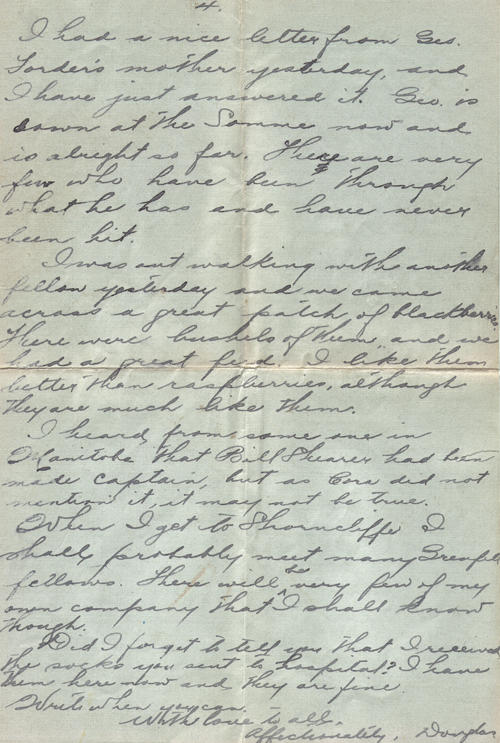 4.
I had a nice letter from Geo.
Forder's mother yesterday, and
I have just answered it. Geo. is
down at the Somme now and
is alright so far. There are very
few who have been through
what he has and have never
been hit.
I was out walking with another
fellow yesterday and we came
across a great patch of blackberries
There were bushels of them, and we
had a great feed. I like them
better than raspberries, although
they are much like them.
I heard from some one in
Manitoba that Bill Shearer had been
made captain, but as Cora did not
mention it, it may not be true.
When I get to Shorncliffe I
shall probably meet many Grenfell
fellows. There will be very few of my
own company that I shall know
though.
Did I forget to tell you that I received
the socks you sent to hospital? I have
them here now and they are fine.
Write when you can.
With love to all.
Affectionately, Douglas